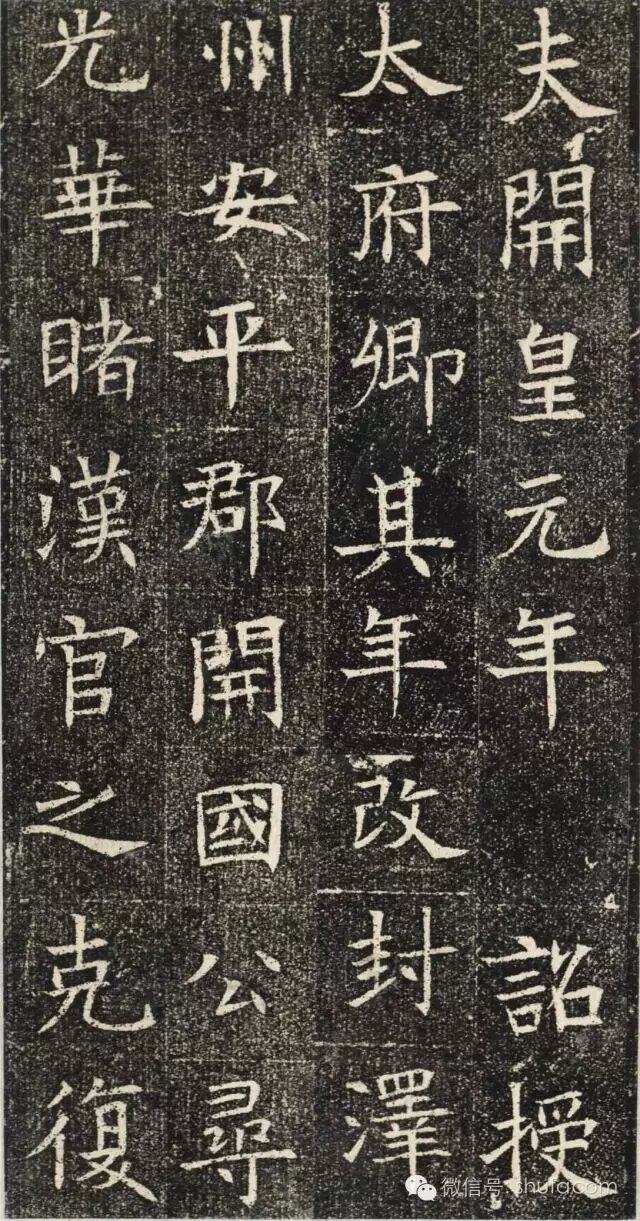 夫開皇元年 詔授
太府卿其年改封澤
州安平郡開國公尋
光華睹漢官之克復
微信号: shufacom